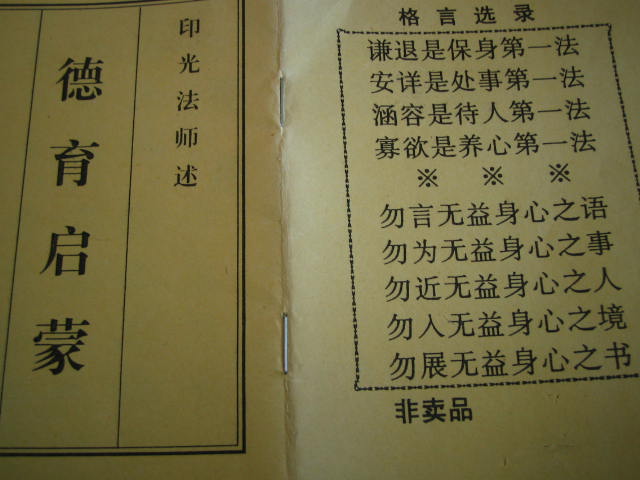 德育启蒙
印光法师述
格言选录
谦退是保身第一法
安详是处事第一法
涵容是待人第一法
寡欲是养心第一法
※ ※ ※
勿言无益身心之语
勿为无益身心之事
勿近无益身心之人
勿入无益身心之境
勿展无益身心之书
非卖品